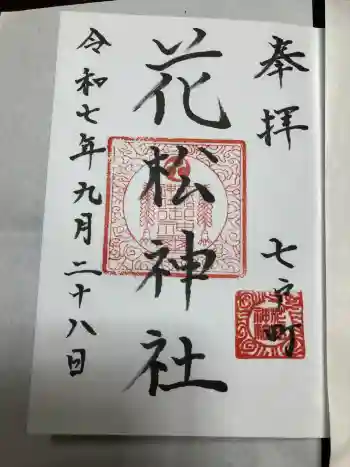 奉拝
七戸町
花松神社
令和七年九月二十八日